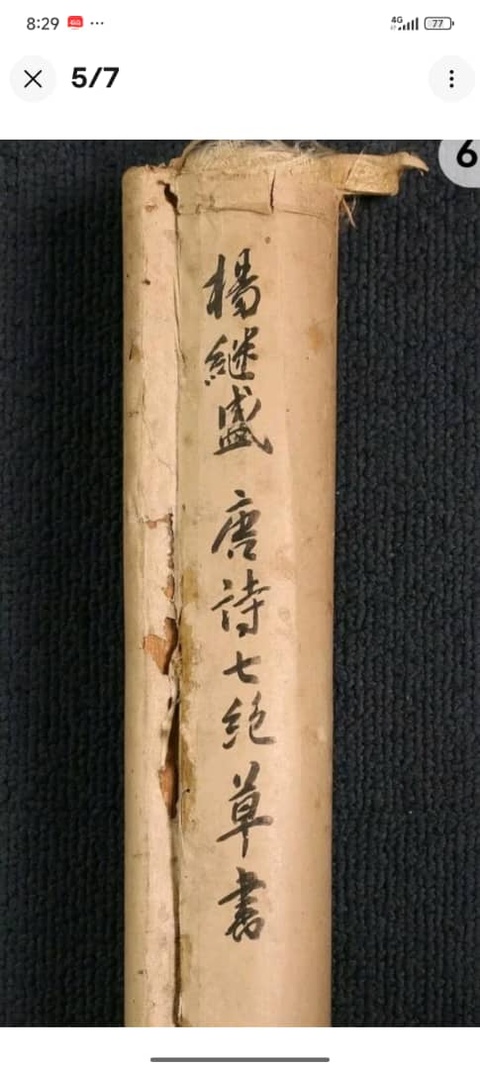 8:29
4G
77
5/7
6
楊继盛 唐詩七絶草書